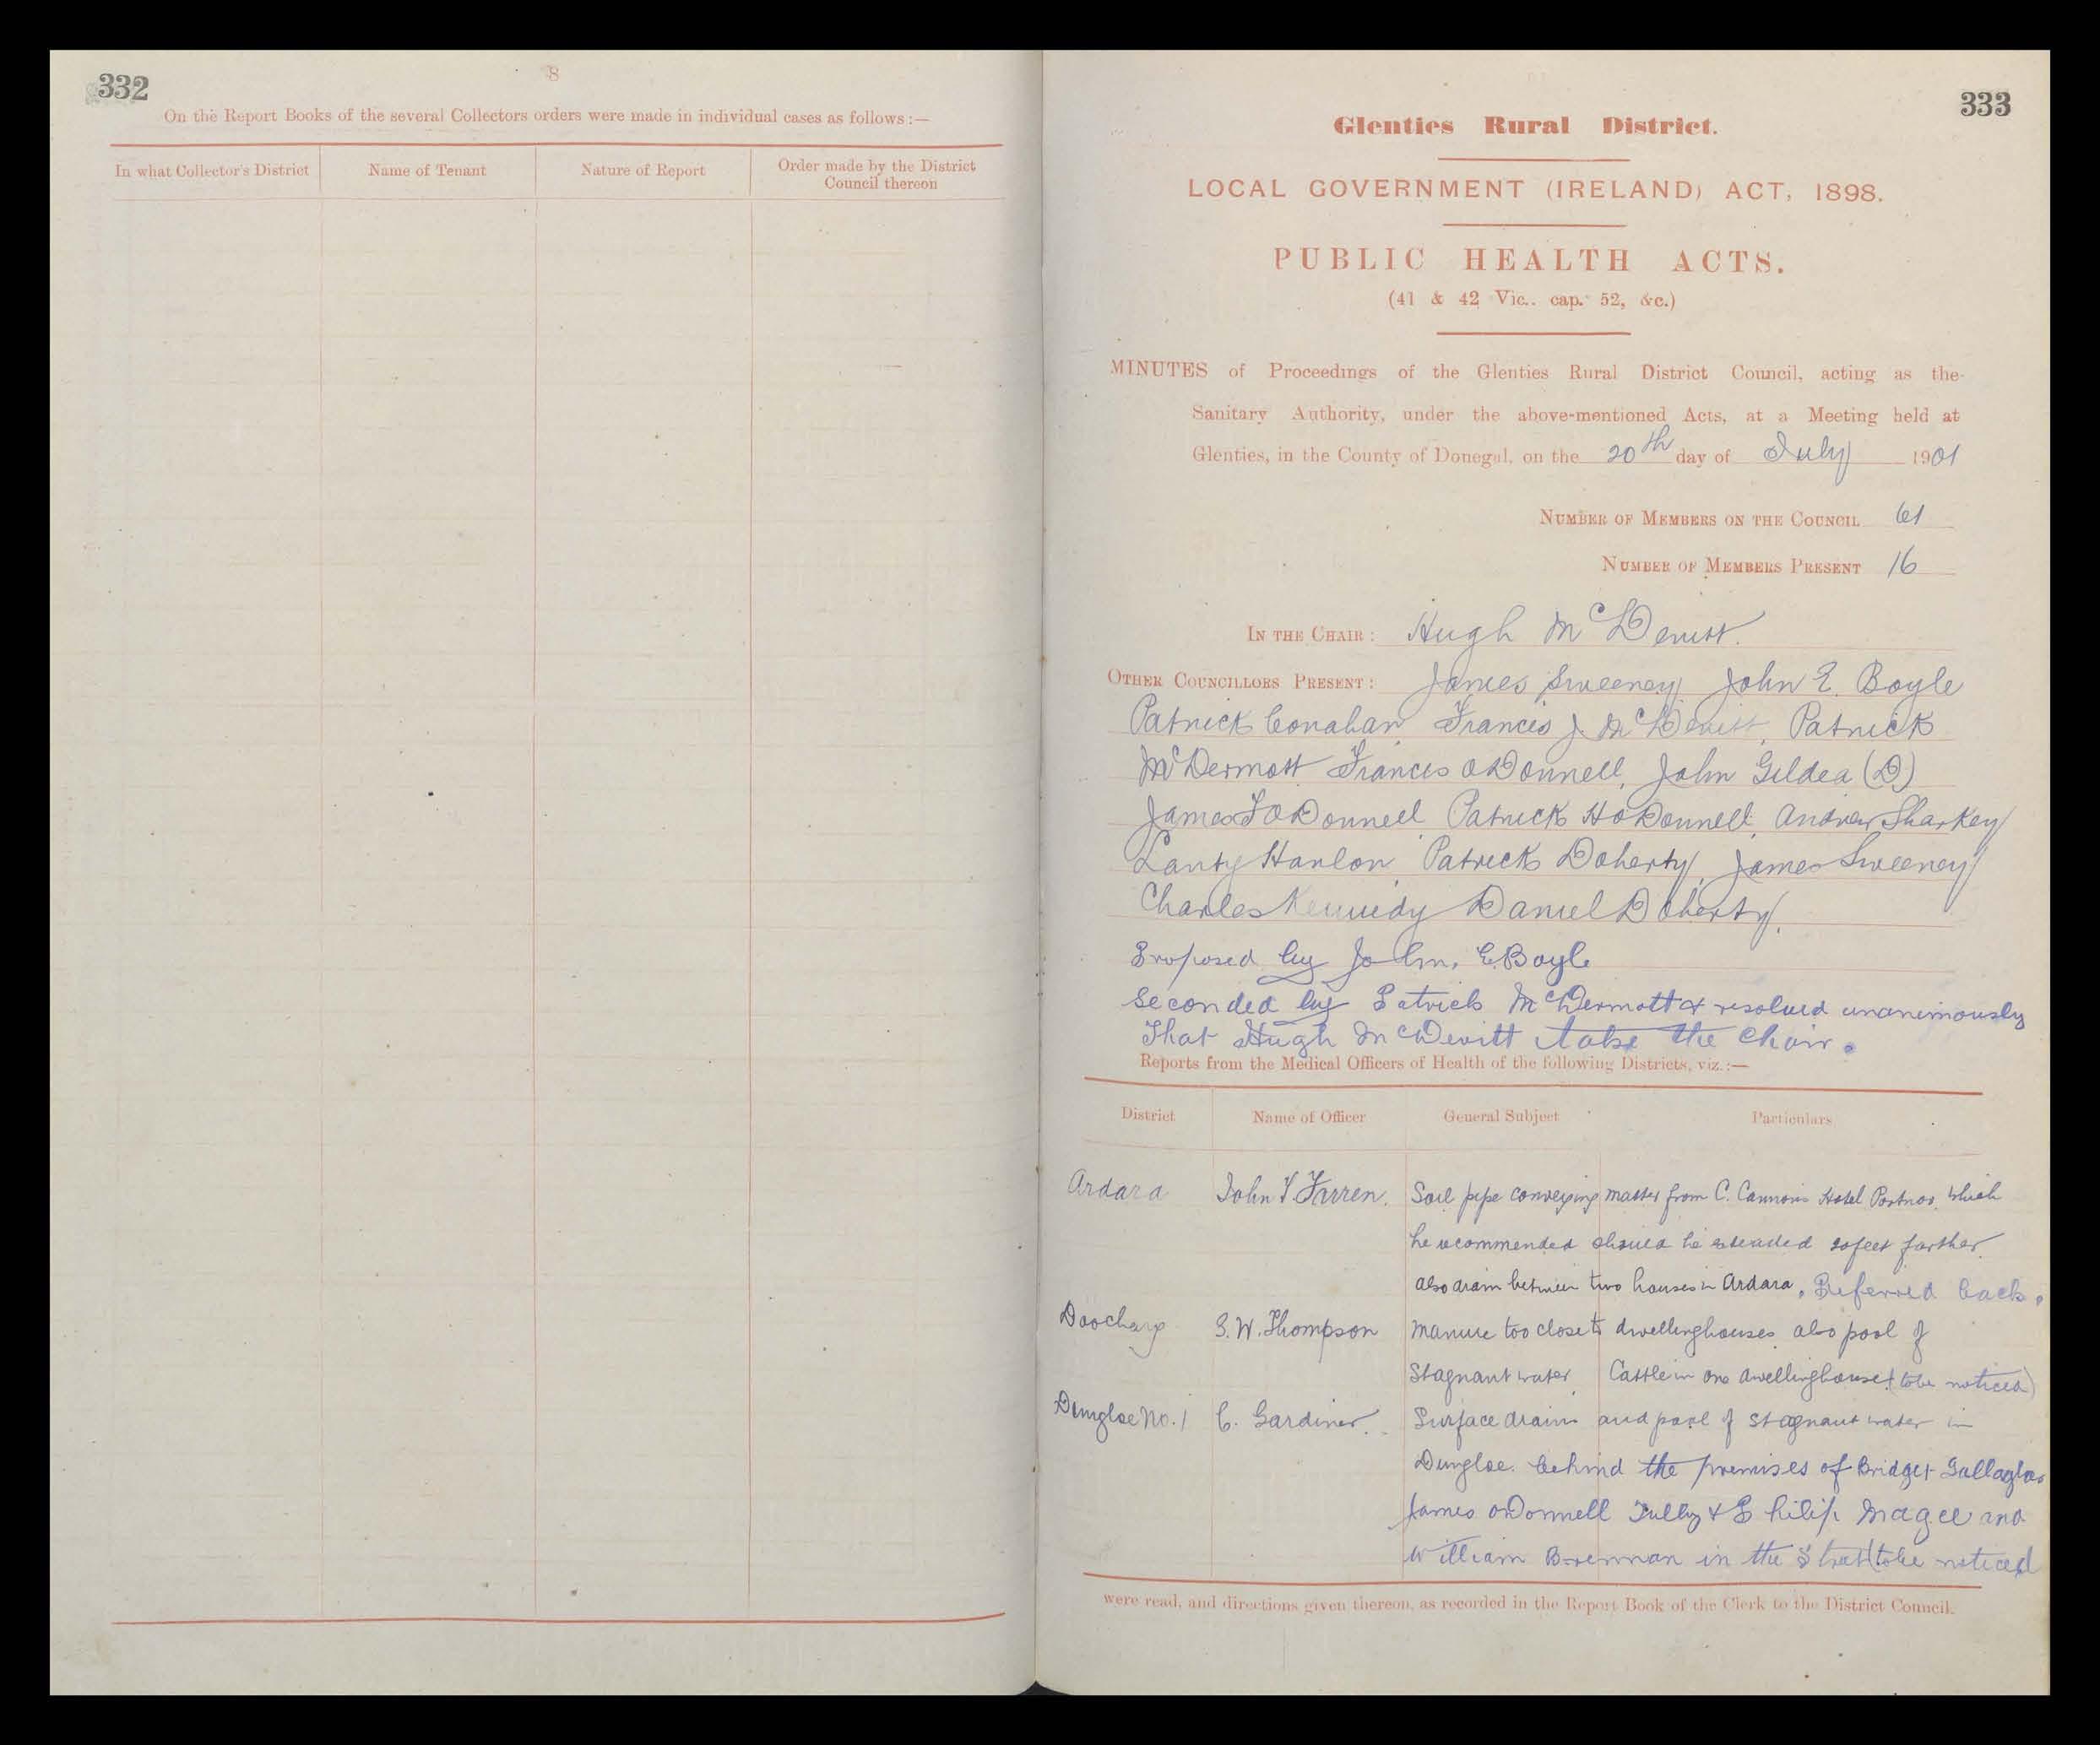 332
8
On the Report Books of the several Collectors orders were made in individual cases as follows:—
In what Collector's District
Name of Tenant
Nature of Report
Order made by the District
Council thereon
333
Glenties Rural District.
LOCAL GOVERNMENT (IRELAND) ACT, 1898.
PUBLIC HEALTH ACTS.
(41 & 42 Vic.. cap. 52, &c.)
MINUTES of Proceedings of the Glenties Rural District Council, acting as the
Sanitary Authority, under the above-mentioned Acts, at a Meeting held at
Glenties, in the County of Donegal, on the 20th day of July 1901
NUMBER OF MEMBERS ON THE COUNCIL 61
NUMBER OF MEMBERS PRESENT 16
IN THE CHAIR: Hugh McDevitt.
OTHER COUNCILLORS PRESENT: James Sweeney John E. Boyle
Patrick Conahan Francis J. McDevitt, Patrick
McDermott Francis ODonnell, John Gildea (D)
James F ODonnell, Patrick H ODonnell, Andrew Sharkey
Lanty Hanlon, Patrick Doherty, James Sweeney
Charles Kennedy Daniel Doherty.
Proposed by John. E. Boyle
Seconded by Patrick McDermott & resolved unanimously
That Hugh McDevitt take the chair.
Reports from the Medical Officers of Health of the following Districts, viz.:—
District
Name of Officer
General Subject
Particulars
Ardara John F Farren. Soil pipe conveying matter from C. Cannon's Hotel Portnoo, which
he recommended should be extended feet farther.
also drain between two houses in Ardara. Referred back.
Doochary S. W. Thompson Manure too close to dwellinghouses also pool of
Stagnant water, Cattle in one dwellinghouse (to be noticed)
Dungloe No. 1 C. Gardiner. Surface drain and pool of stagnant water in
Dungloe. behind the premises of Bridget Gallagher
James ODonnell Tully & Philip Magee and
William Brennan in the Street (to be noticed
were read, and directions given thereon, as recorded in the Report Book of the Clerk to the District Council.